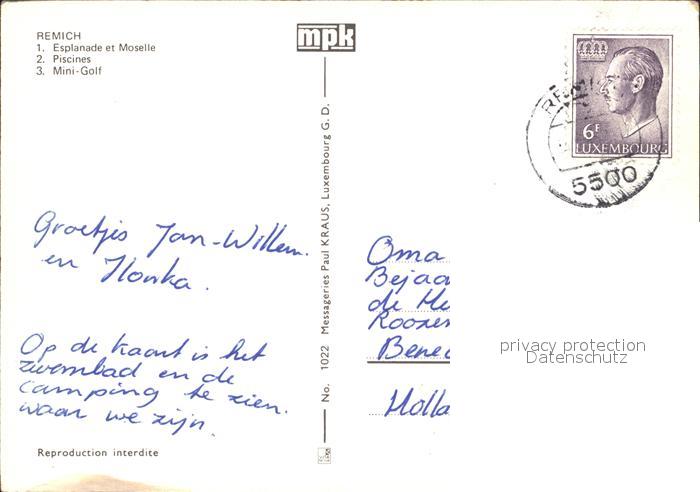 REMICH
1. Esplanade et Moselle
2. Piscines
3. Mini-Golf
mpk
6F
LUXEMBOURG
5500
Groetjes Jan-Willem.
en
Op de kaart is het
zwembad en de
camping te zien.
waar we zijn.
Reproduction interdite
No. 1022 Messageries Paul KRAUS, Luxembourg G. D.
Oma
Bejaa
de He
Roozen
Bene
Holla
privacy protection
Datenschutz